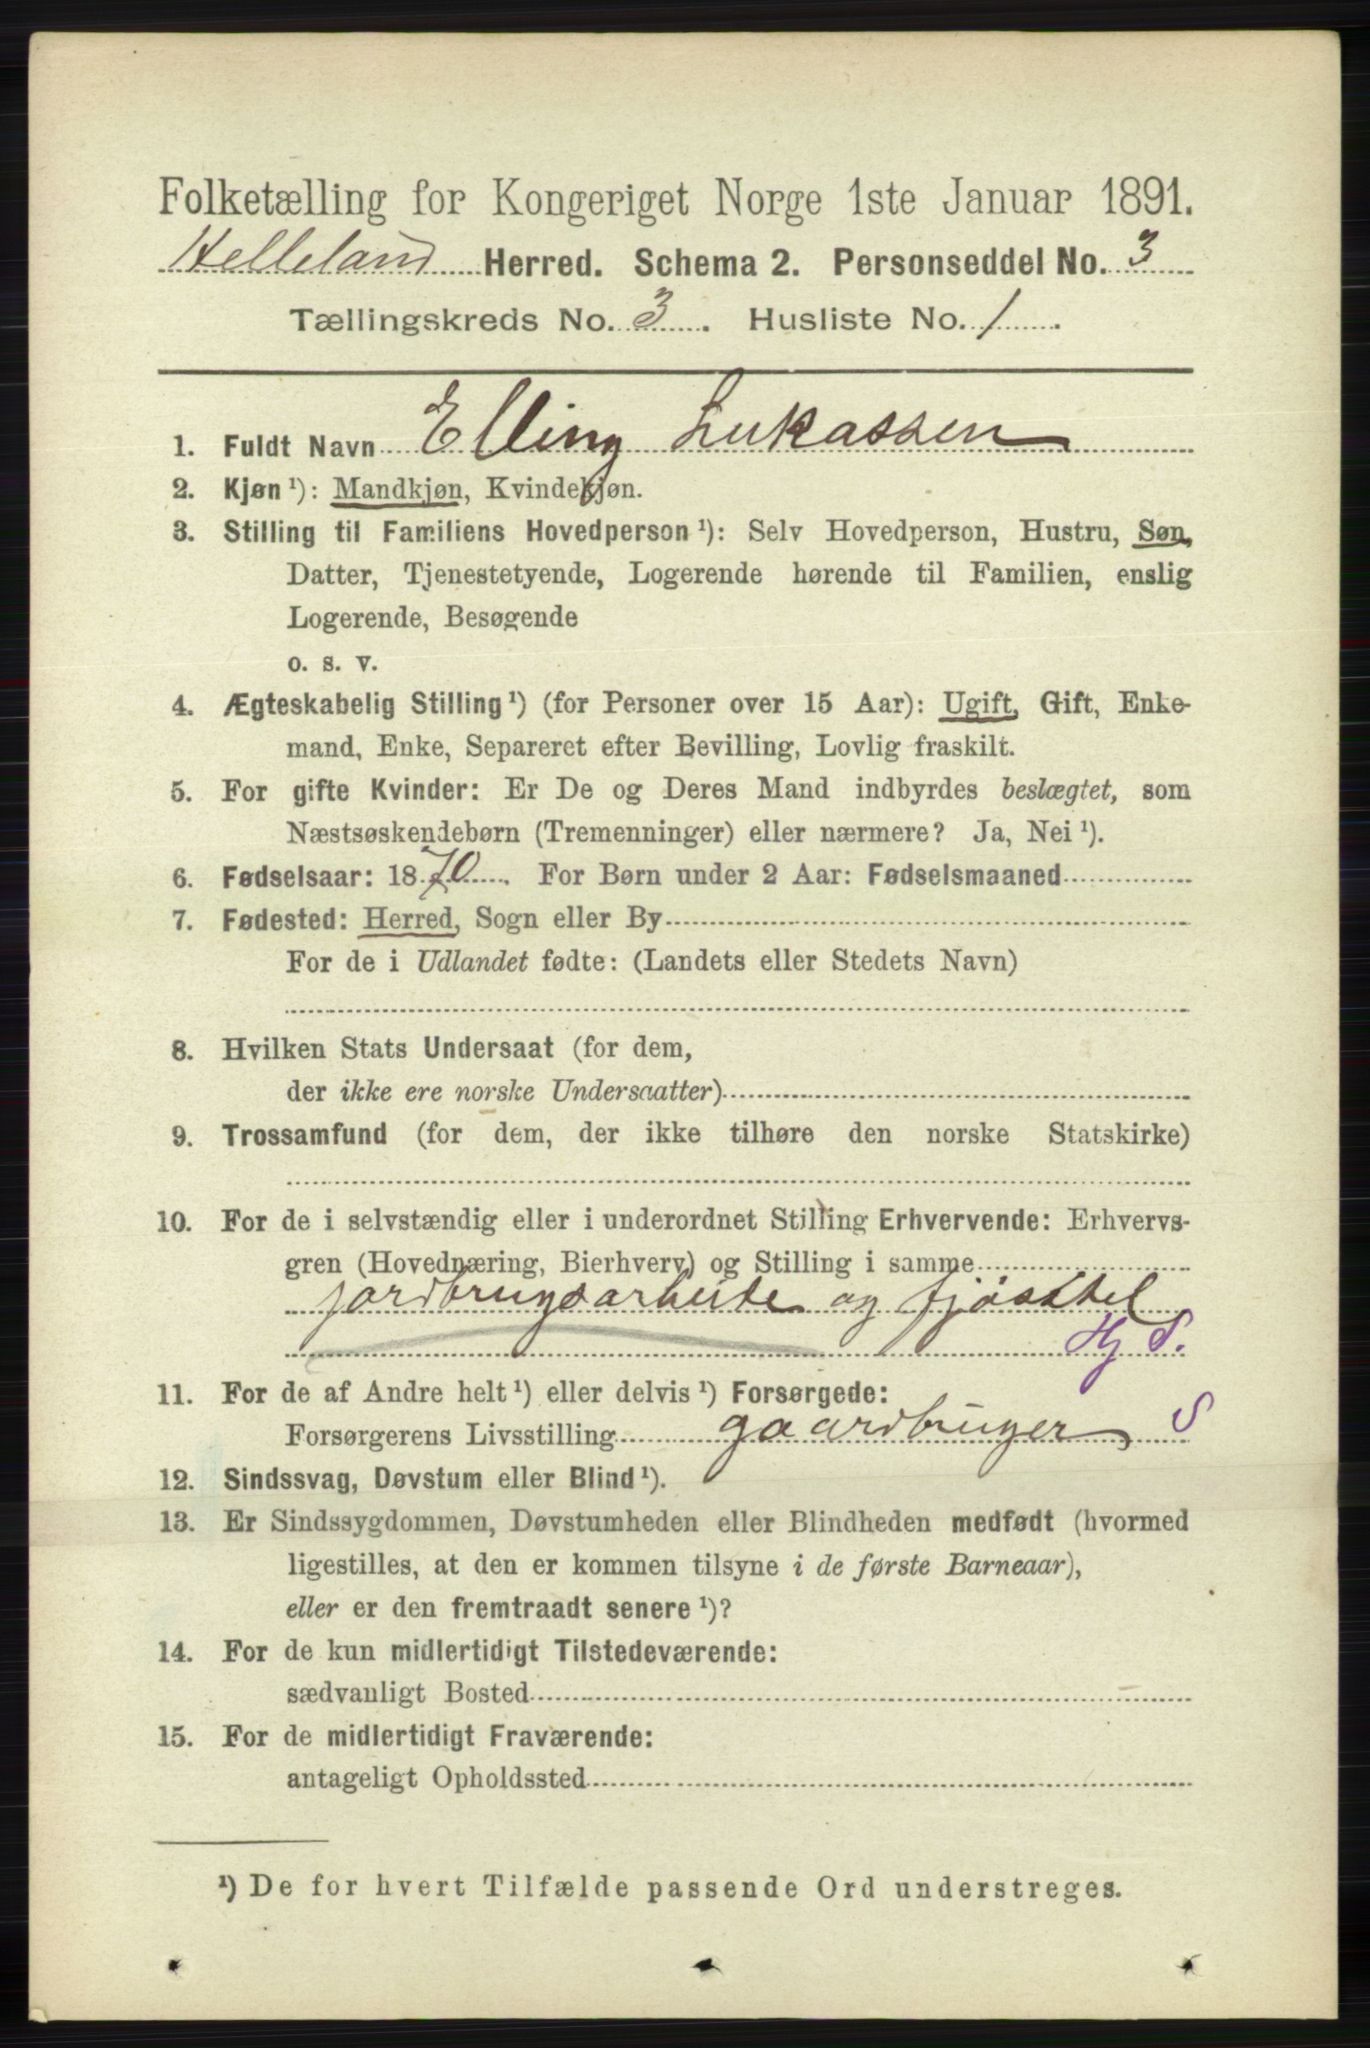 Folketælling for Kongeriget Norge 1ste Januar 1891.
Helleland Herred. Schema 2. Personseddel No. 3
Tællingskreds No. 3. Husliste No. 1.
1. Fuldt Navn Elling Lukassen
2. Kjøn ¹): Mandkjøn, Kvindekjøn.
3. Stilling til Familiens Hovedperson ¹): Selv Hovedperson, Hustru, Søn,
Datter, Tjenestetyende, Logerende hørende til Familien, enslig
Logerende, Besøgende
o. s. v.
4. Ægteskabelig Stilling ¹) (for Personer over 15 Aar): Ugift, Gift, Enke-
mand, Enke, Separeret efter Bevilling, Lovlig fraskilt.
5. For gifte Kvinder: Er De og Deres Mand indbyrdes beslægtet, som
Næstsøskendebørn (Tremenninger) eller nærmere? Ja, Nei ¹).
6. Fødselsaar: 1870. For Børn under 2 Aar: Fødselsmaaned
7. Fødested: Herred, Sogn eller By
For de i Udlandet fødte: (Landets eller Stedets Navn)
8. Hvilken Stats Undersaat (for dem,
der ikke ere norske Undersaatter)
9. Trossamfund (for dem, der ikke tilhøre den norske Statskirke)
10. For de i selvstændig eller i underordnet Stilling Erhvervende: Erhvervs-
gren (Hovednæring, Bierhverv) og Stilling i samme
jordbrugsarbeide og fjøsstel
Hj S.
11. For de af Andre helt ¹) eller delvis ¹) Forsørgede:
Forsørgerens Livsstilling gaardbruger, S
12. Sindssvag, Døvstum eller Blind ¹).
13. Er Sindssygdommen, Døvstumheden eller Blindheden medfødt (hvormed
ligestilles, at den er kommen tilsyne i de første Barneaar),
eller er den fremtraadt senere ¹)?
14. For de kun midlertidigt Tilstedeværende:
sædvanligt Bosted
15. For de midlertidigt Fraværende:
antageligt Opholdssted
¹) De for hvert Tilfælde passende Ord understreges.